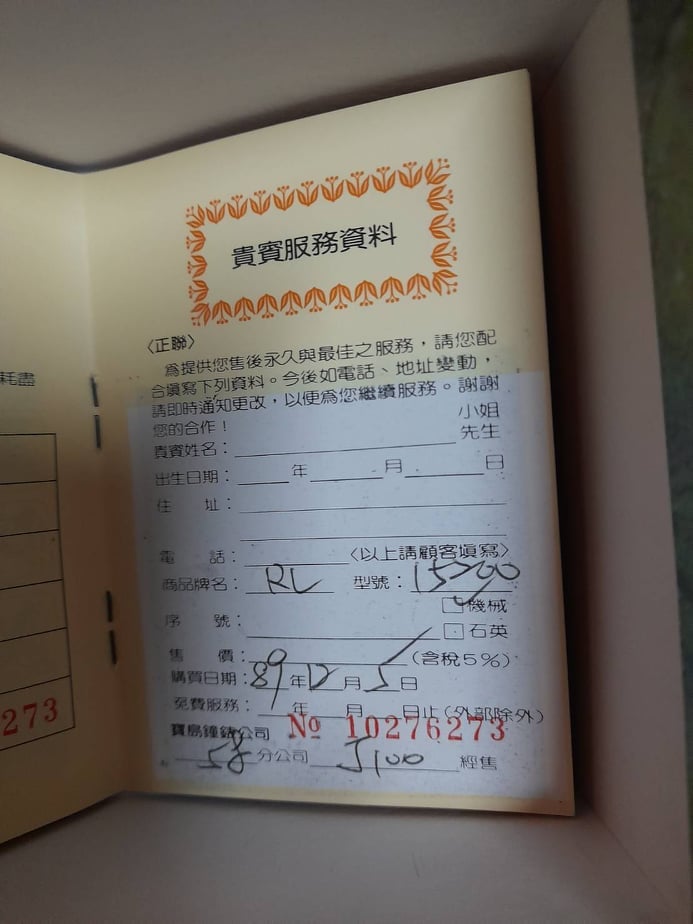 貴賓服務資料
〈正聯〉
為提供您售後永久與最佳之服務，請您配
合填寫下列資料。今後如電話、地址變動，
請即時通知更改，以便為您繼續服務。謝謝
您的合作！
小姐
貴賓姓名：先生
出生日期：年月日
住址：
電話：〈以上請顧客填寫〉
商品牌名：RL 型號：15200
機械
序號：
石英
售價：(含稅5%)
購買日期：89年12月5日
免費服務：年月日止(外部除外)
寶島鐘錶公司 № 10276273
分公司 J100 經售
耗盡
273